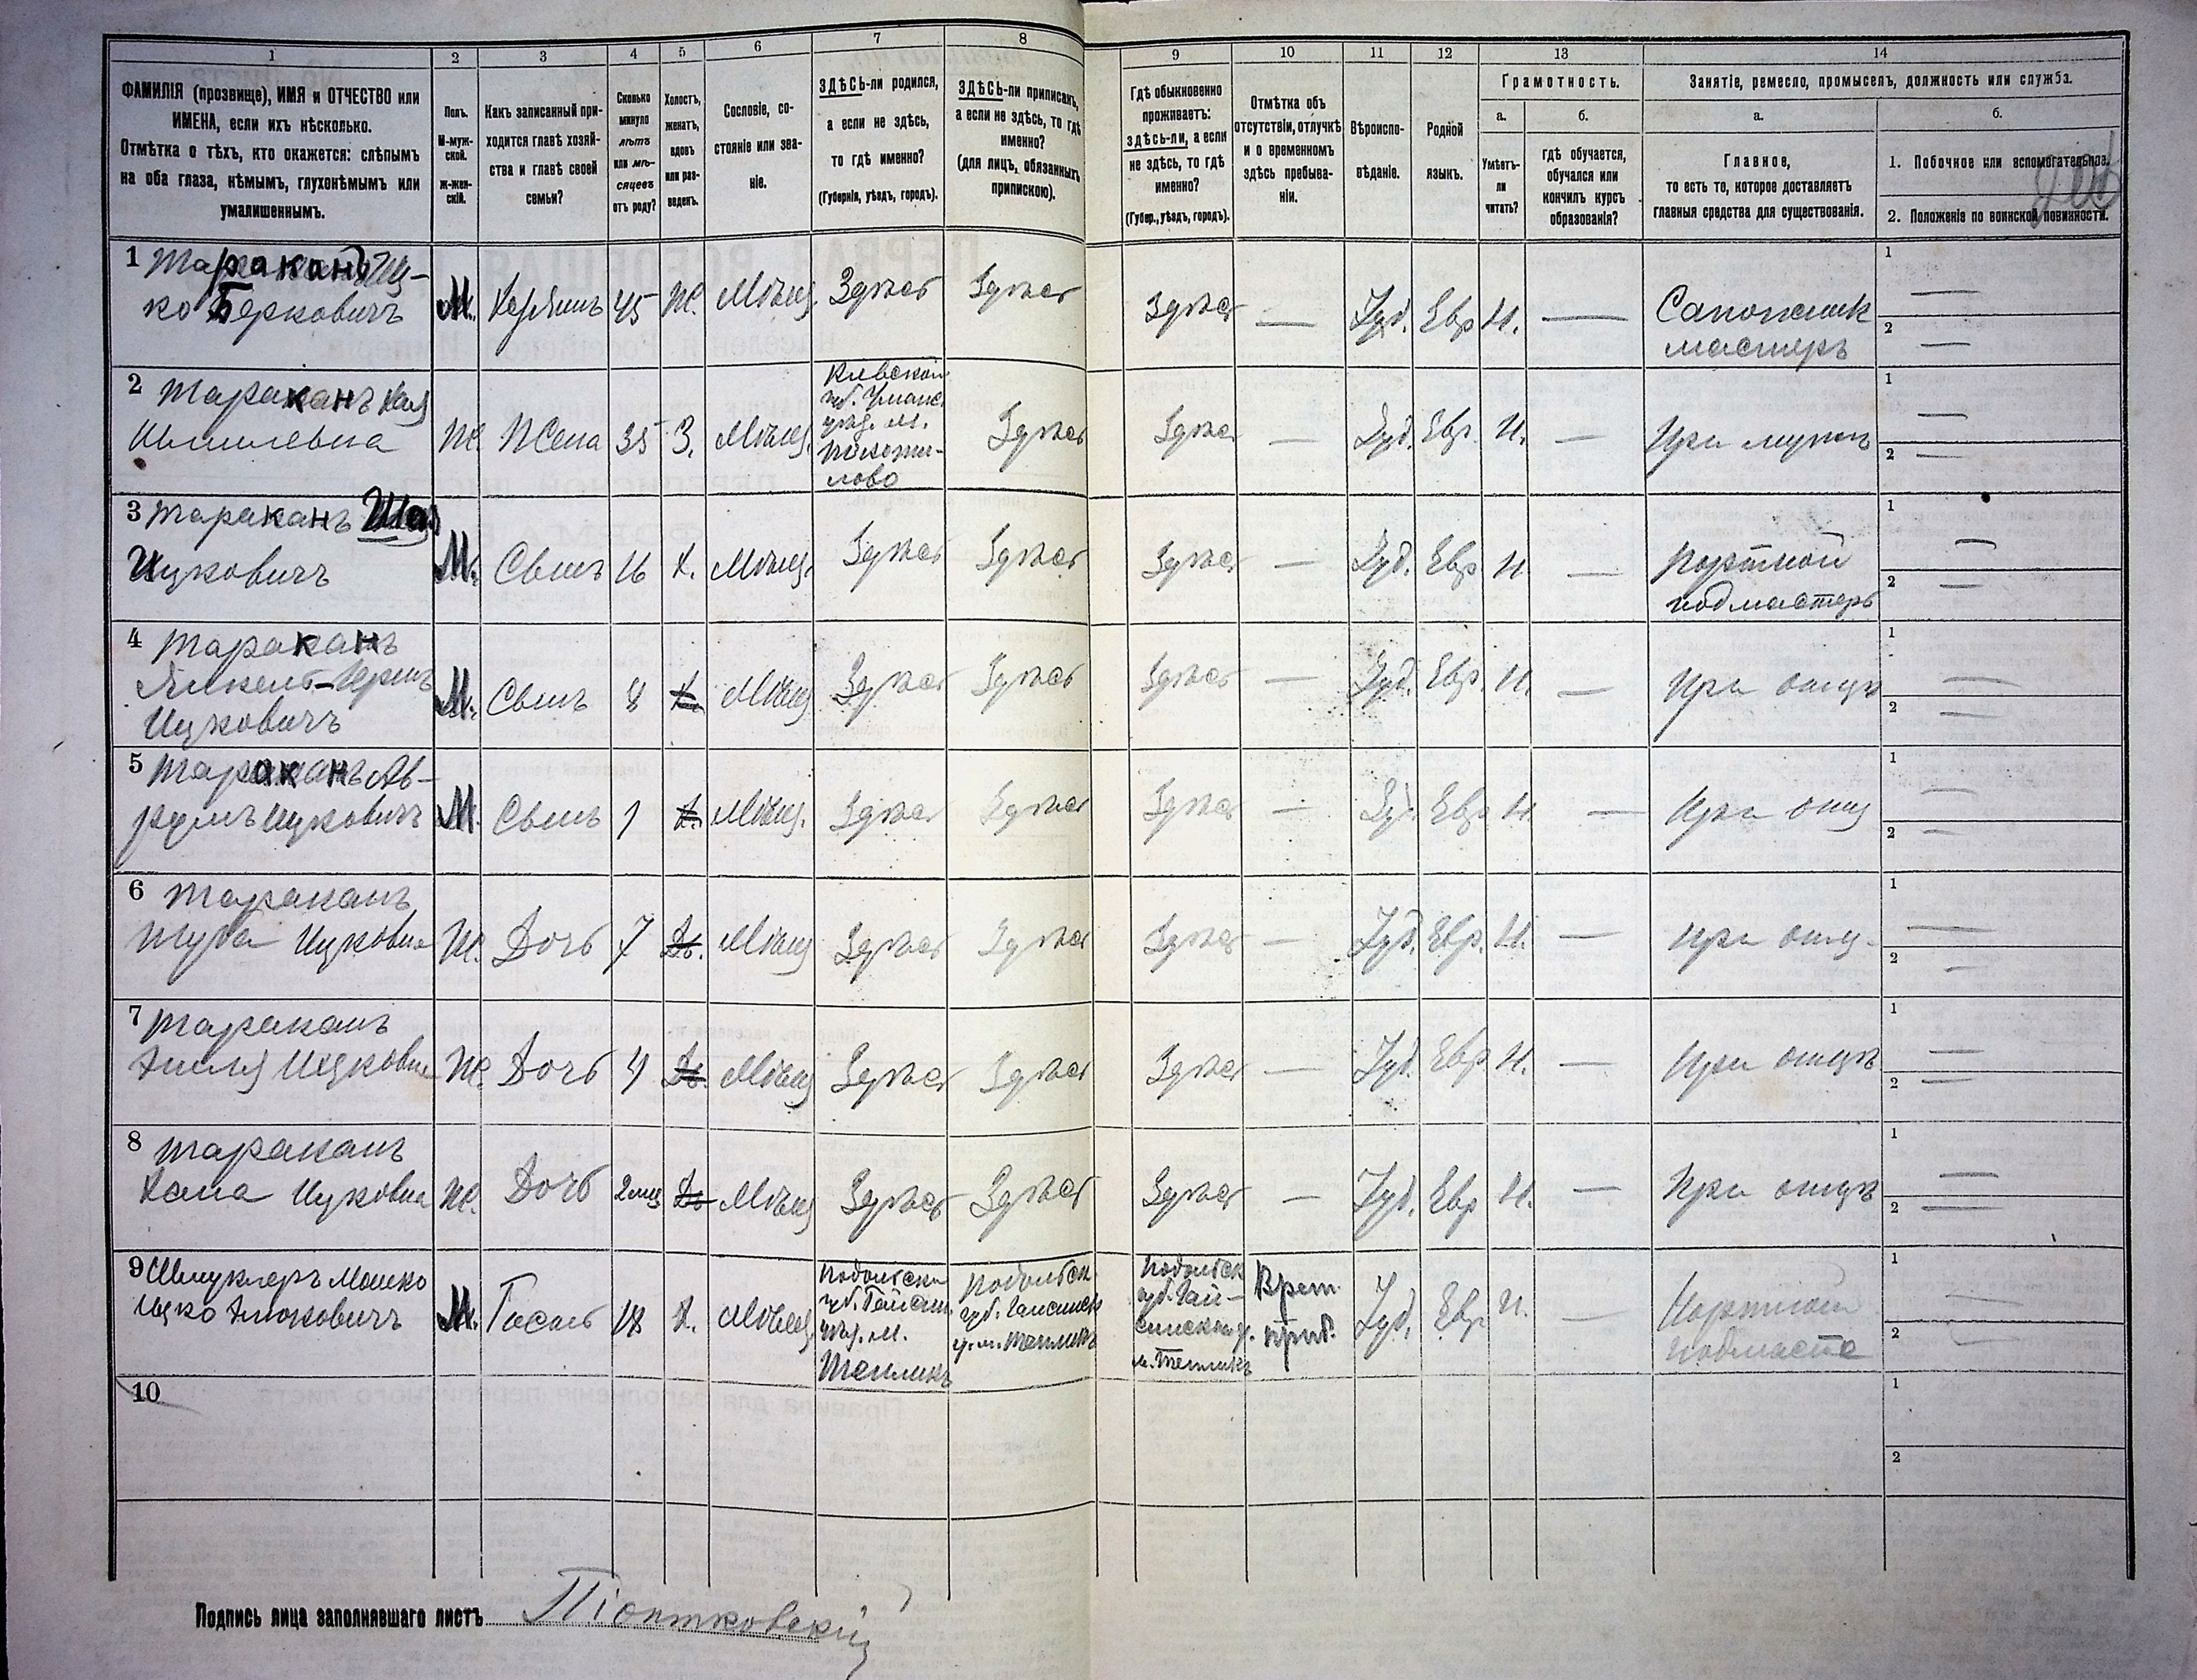 1
2
3
4
5
6
7
8
9
10
11
12
13
14
ФАМИЛІЯ (прозвище), ИМЯ и ОТЧЕСТВО или
ИМЕНА, если ихъ нѣсколько.
Отмѣтка о тѣхъ, кто окажется: слѣпымъ
на оба глаза, нѣмымъ, глухонѣмымъ или
умалишеннымъ.
Полъ.
М-муж-
ской.
ж-жен-
скій.
Какъ записанный при-
ходится главѣ хозяй-
ства и главѣ своей
семьи?
Сколько
минуло
лѣтъ
или мѣ-
сяцевъ
отъ роду?
Холостъ,
женатъ,
вдовъ
или раз-
веденъ.
Сословіе, со-
стояніе или зва-
ніе.
ЗДѢСЬ-ли родился,
а если не здѣсь,
то гдѣ именно?
(Губернія, уѣздъ, городъ).
ЗДѢСЬ-ли приписанъ,
а если не здѣсь, то гдѣ
именно?
(для лицъ, обязанныхъ
припискою).
Гдѣ обыкновенно
проживаетъ:
здѣсь-ли, а если
не здѣсь, то гдѣ
именно?
(Губер., уѣздъ, городъ).
Отмѣтка объ
отсутствіи, отлучкѣ
и о временномъ
здѣсь пребыва-
ніи.
Вѣроиспо-
вѣданіе.
Родной
языкъ.
Грамотность.
а.
Умѣетъ-
ли
читать?
б.
гдѣ обучается,
обучался или
кончилъ курсъ
образованія?
Занятіе, ремесло, промыселъ, должность или служба.
а.
Главное,
то есть то, которое доставляетъ
главныя средства для существованія.
б.
1. Побочное или вспомогательное.
2. Положеніе по воинской повинности.
1 Тараканъ Иц-
ко Берковичъ
М. Хозяинъ 45 Ж. Мѣщ. Здѣсь Здѣсь Здѣсь — Іуд. Евр Н. — Сапожник
мастеръ
1 —
2 —
2 Тараканъ Хая
М
Ж. Жена 35 З. Мѣщ. Кіевской
губ. Уманс
уѣз. м.
Покоти-
лово
Здѣсь Здѣсь — Іуд. Евр. Н. — При мужѣ
1 —
2 —
3 Тараканъ
Ицковичъ
М. Сынъ 16 Х. Мѣщ. Здѣсь Здѣсь Здѣсь — Іуд. Евр Н. — Портной
подмастеръ
1 —
2 —
4 Тараканъ
Янкель-Герш
Ицковичъ
М. Сынъ 8 Х. Мѣщ Здѣсь Здѣсь Здѣсь — Іуд. Евр. Н. — При отцѣ
1 —
2 —
5 Тараканъ Ав-
румъ Ицковичъ
М. Сынъ 1 Х. Мѣщ. Здѣсь Здѣсь Здѣсь — Іуд. Евр Н. — При отц
1 —
2 —
6 Тараканъ
Ицковна
Ж. Дочь 7 Дѣ. Мѣщ Здѣсь Здѣсь Здѣсь — Іуд. Евр. Н. — При отц.
1 —
2 —
7 Тараканъ
Ицковна
Ж. Дочь 4 Дѣ. Мѣщ Здѣсь Здѣсь Здѣсь — Іуд. Евр Н. — При отцѣ
1 —
2 —
8 Тараканъ
Хана Ицковна
Ж. Дочь 2 мѣс Дѣ Мѣщ Здѣсь Здѣсь Здѣсь — Іуд. Евр Н. — При отцѣ
1 —
2 —
9 Шмуклеръ Мошко
Ицко
М. Гость 18 Х. Мѣщ
Подольск
губ. Гайсин.
уѣз. м.
Тепликъ
Подольск
губ. Гайсинск
у. м. Тепликъ
Подольск
губ. Гай-
синскаго у.
м. Тепликъ
Врем.
преб.
Іуд. Евр. Н. — Портной
подмасте
1 —
2 —
10
1
2
Подпись лица заполнявшаго листъ Піонтковскій